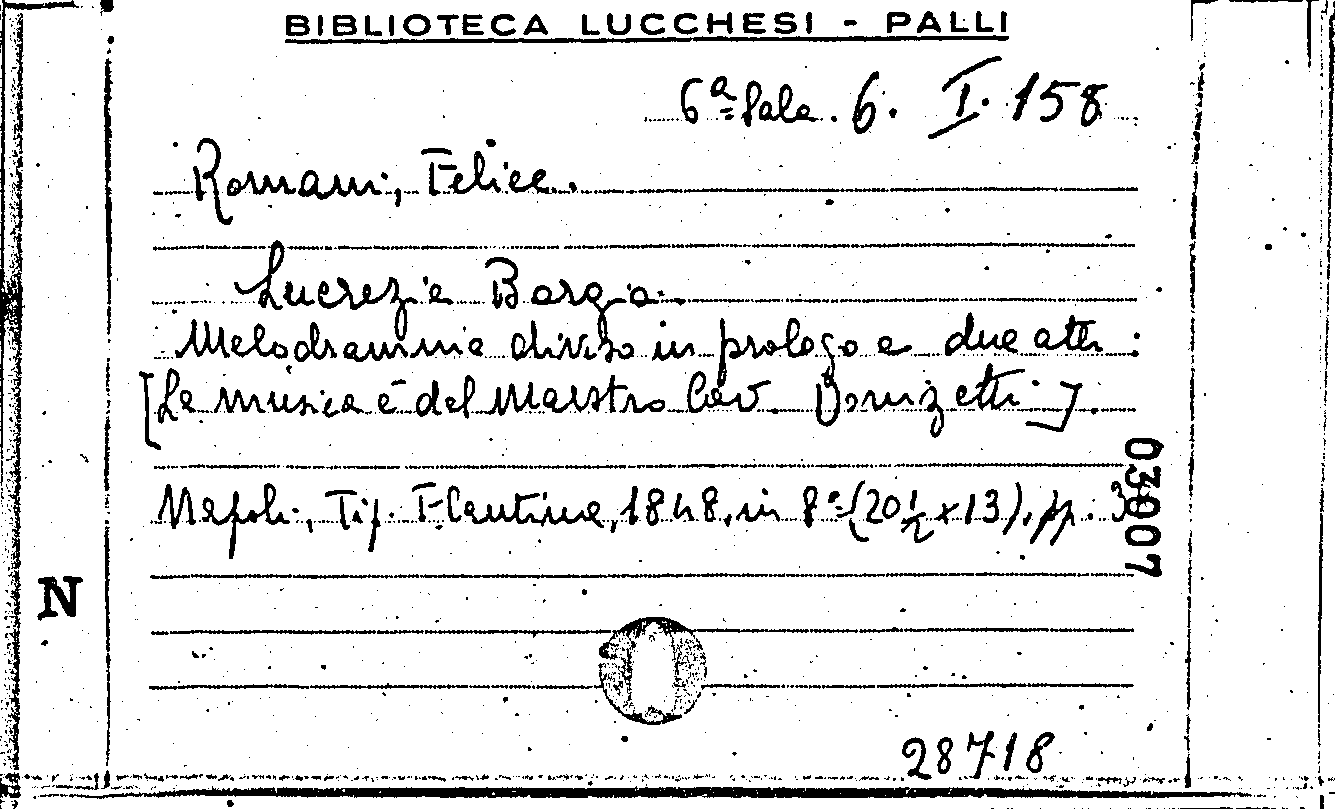 BIBLIOTECA LUCCHESI - PALLI
6ª Sala. 6. I. 158
Romani, Felice.
Lucrezia Borgia.
Melodramma diviso in prologo e due atti :
[La musica è del Maestro Cav. Donizetti].
Napoli, Tip. Flautina, 1848, in 8º (20 1/2 x 13), pp.
03007
N
28718